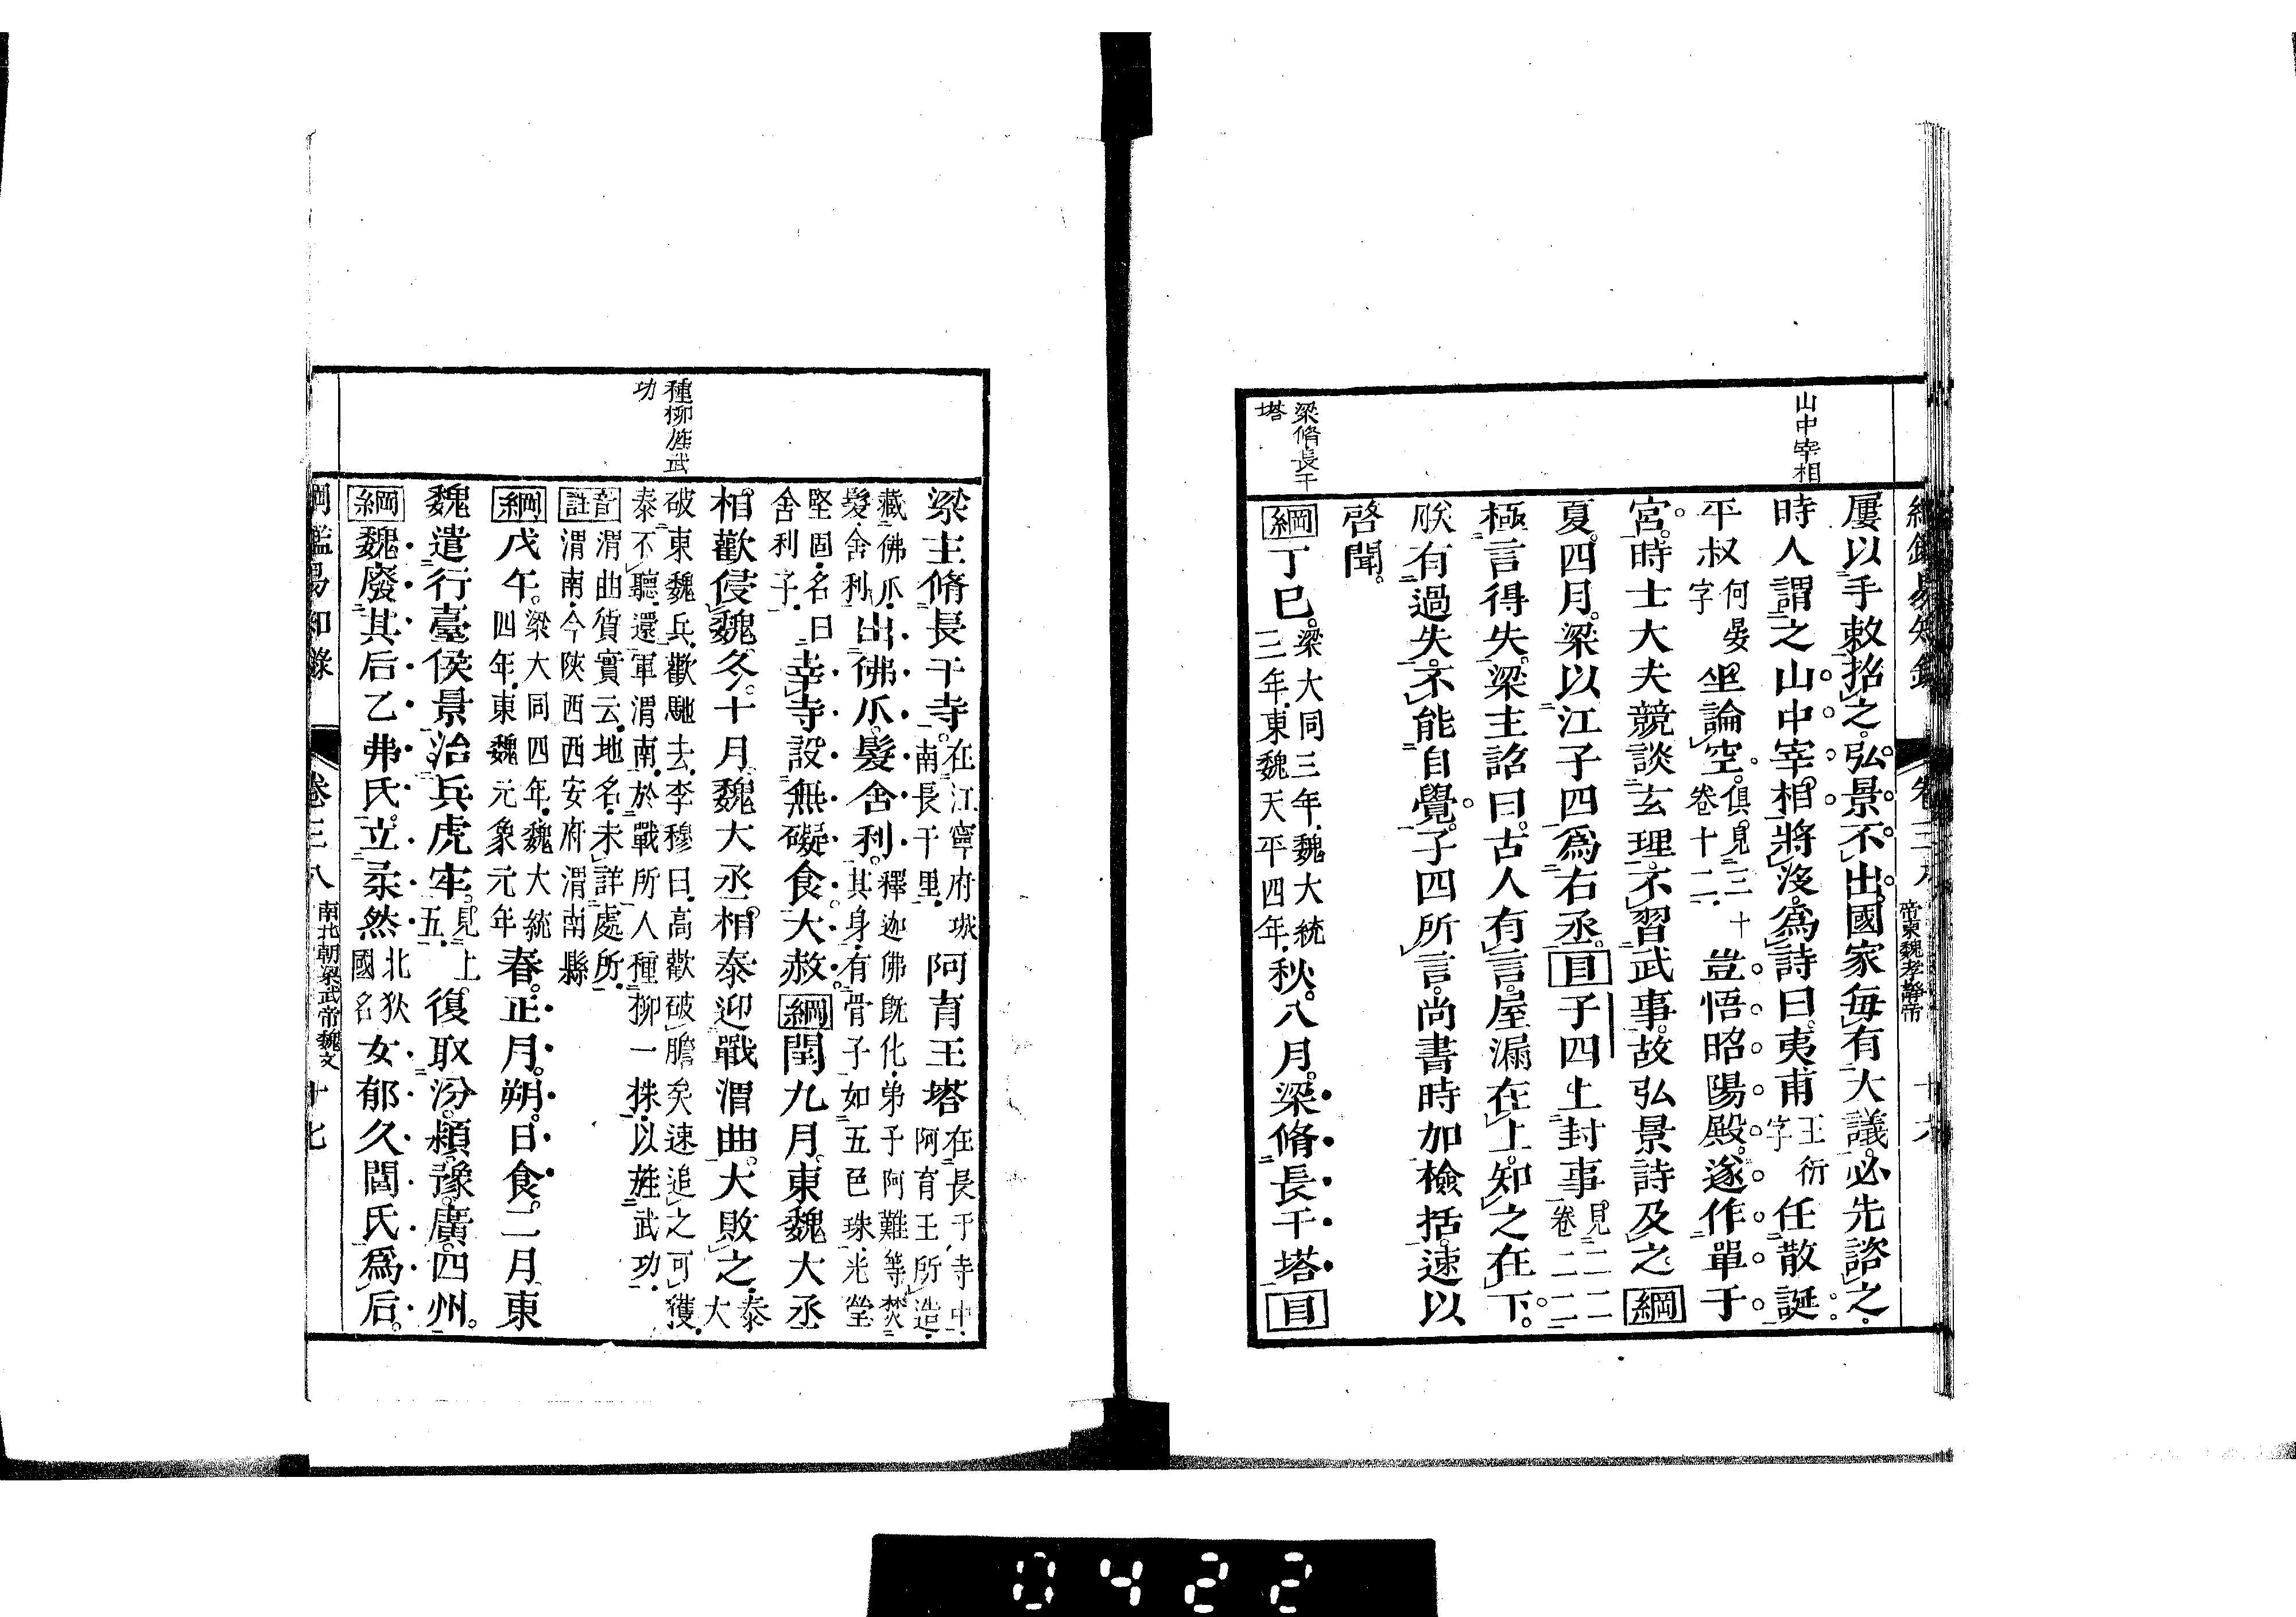 山中宰相
梁脩長干
塔
屢以手敕招之弘景不出國家每有大議必先諮之
時人謂之山中宰相將沒為詩曰夷甫王衍字任散誕
平叔何晏字坐論空俱見三十卷十二豈悟昭陽殿遂作單于
宮時士大夫競談玄理不習武事故弘景詩及之綱
夏四月梁以江子四為右丞目子四上封事見二二卷二二
極言得失梁主詔曰古人有言屋漏在上知之在下
朕有過失不能自覺子四所言尚書時加檢括速以
啓聞
綱丁巳梁大同三年魏大統三年東魏天平四年秋八月梁脩長干塔目
種柳旌武
功
梁主脩長干寺在江寧府城南長干里阿育王塔在長于寺中阿育王所造
藏佛爪髮舍利出佛爪髮舍利釋迦佛既化弟子阿難等焚其身有骨子如五色珠光瑩
堅固名曰舍利子幸寺設無礙食大赦綱閏九月東魏大丞
相歡侵魏冬十月魏大丞相泰迎戰渭曲大敗之泰大
破東魏兵歡馳去李穆曰高歡破膽矣速追之可獲泰不聽還軍渭南於戰所人種柳一株以旌武功
音註渭曲貨實云地名未詳處所渭南今陝西西安府渭南縣
綱戊午梁大同四年魏大統四年東魏元象元年春正月朔日食二月東
魏遣行臺侯景治兵虎牢見上五復取汾潁豫廣四州
綱魏廢其后乙弗氏立柔然北狄國名女郁久閭氏為后
卷三八 南北朝梁武帝魏文 十七
0422